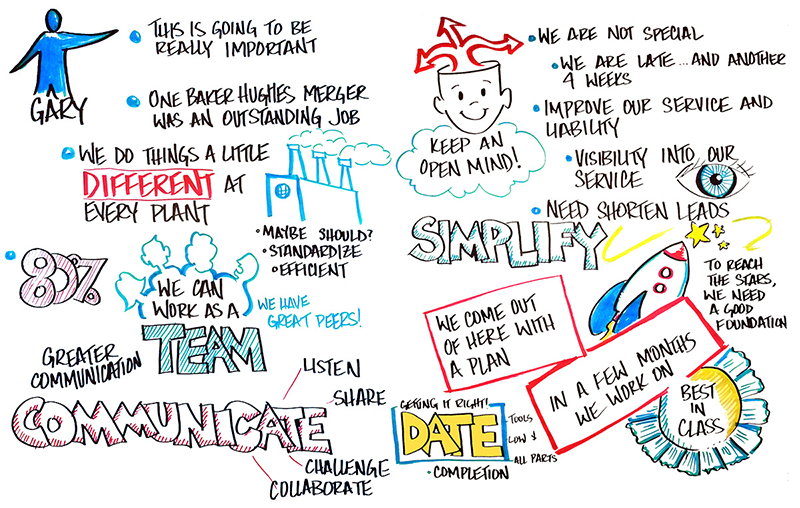 GARY
THIS IS GOING TO BE
REALLY IMPORTANT
ONE BAKER HUGHES MERGER
WAS AN OUTSTANDING JOB
WE DO THINGS A LITTLE
DIFFERENT AT
EVERY PLANT
• MAYBE SHOULD?
• STANDARDIZE
• EFFICIENT
80%
WE CAN
WORK AS A
TEAM
WE HAVE
GREAT PEERS!
GREATER
COMMUNICATION
COMMUNICATE
LISTEN
SHARE
CHALLENGE
COLLABORATE
KEEP AN
OPEN MIND!
WE ARE NOT SPECIAL
WE ARE LATE...AND ANOTHER
4 WEEKS
IMPROVE OUR SERVICE AND
LIABILITY
VISIBILITY INTO OUR
SERVICE
NEED SHORTEN LEADS
SIMPLIFY
TO REACH
THE STARS,
WE NEED
A GOOD
FOUNDATION
WE COME OUT
OF HERE WITH
A PLAN
IN A FEW MONTHS
WE WORK ON
BEST
IN
CLASS
GETTING IT RIGHT!
DATE
TOOLS
LOW $
ALL PARTS
• COMPLETION